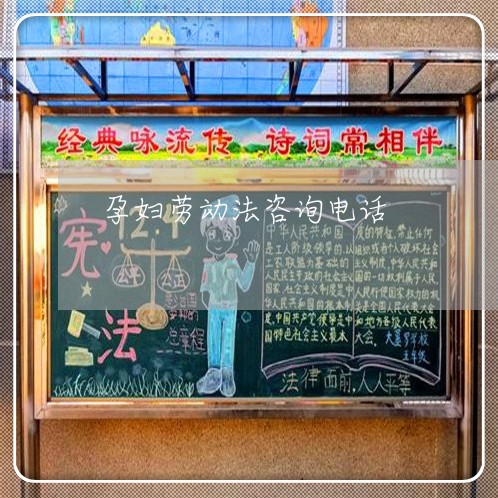 经典咏流传 诗词常相伴
孕妇劳动法咨询电话
宪法
12.4
公平
公正
总章程
中华人民共和国
是工人阶级领导的,以
工农联盟为基础的
人民民主专政的社会主义
国家,社会主义制度是中
华人民共和国的根本制
度,中国共产党领导是中
国特色社会主义最本
质的特征,禁止任何
组织或者个人破坏社会
主义制度,中华人民共和
国的一切权利属于人民,
人民行使国家权力的机
关是全国人民代表大会
和地方各级人民代表
大会。
五年级
法律面前,人人平等